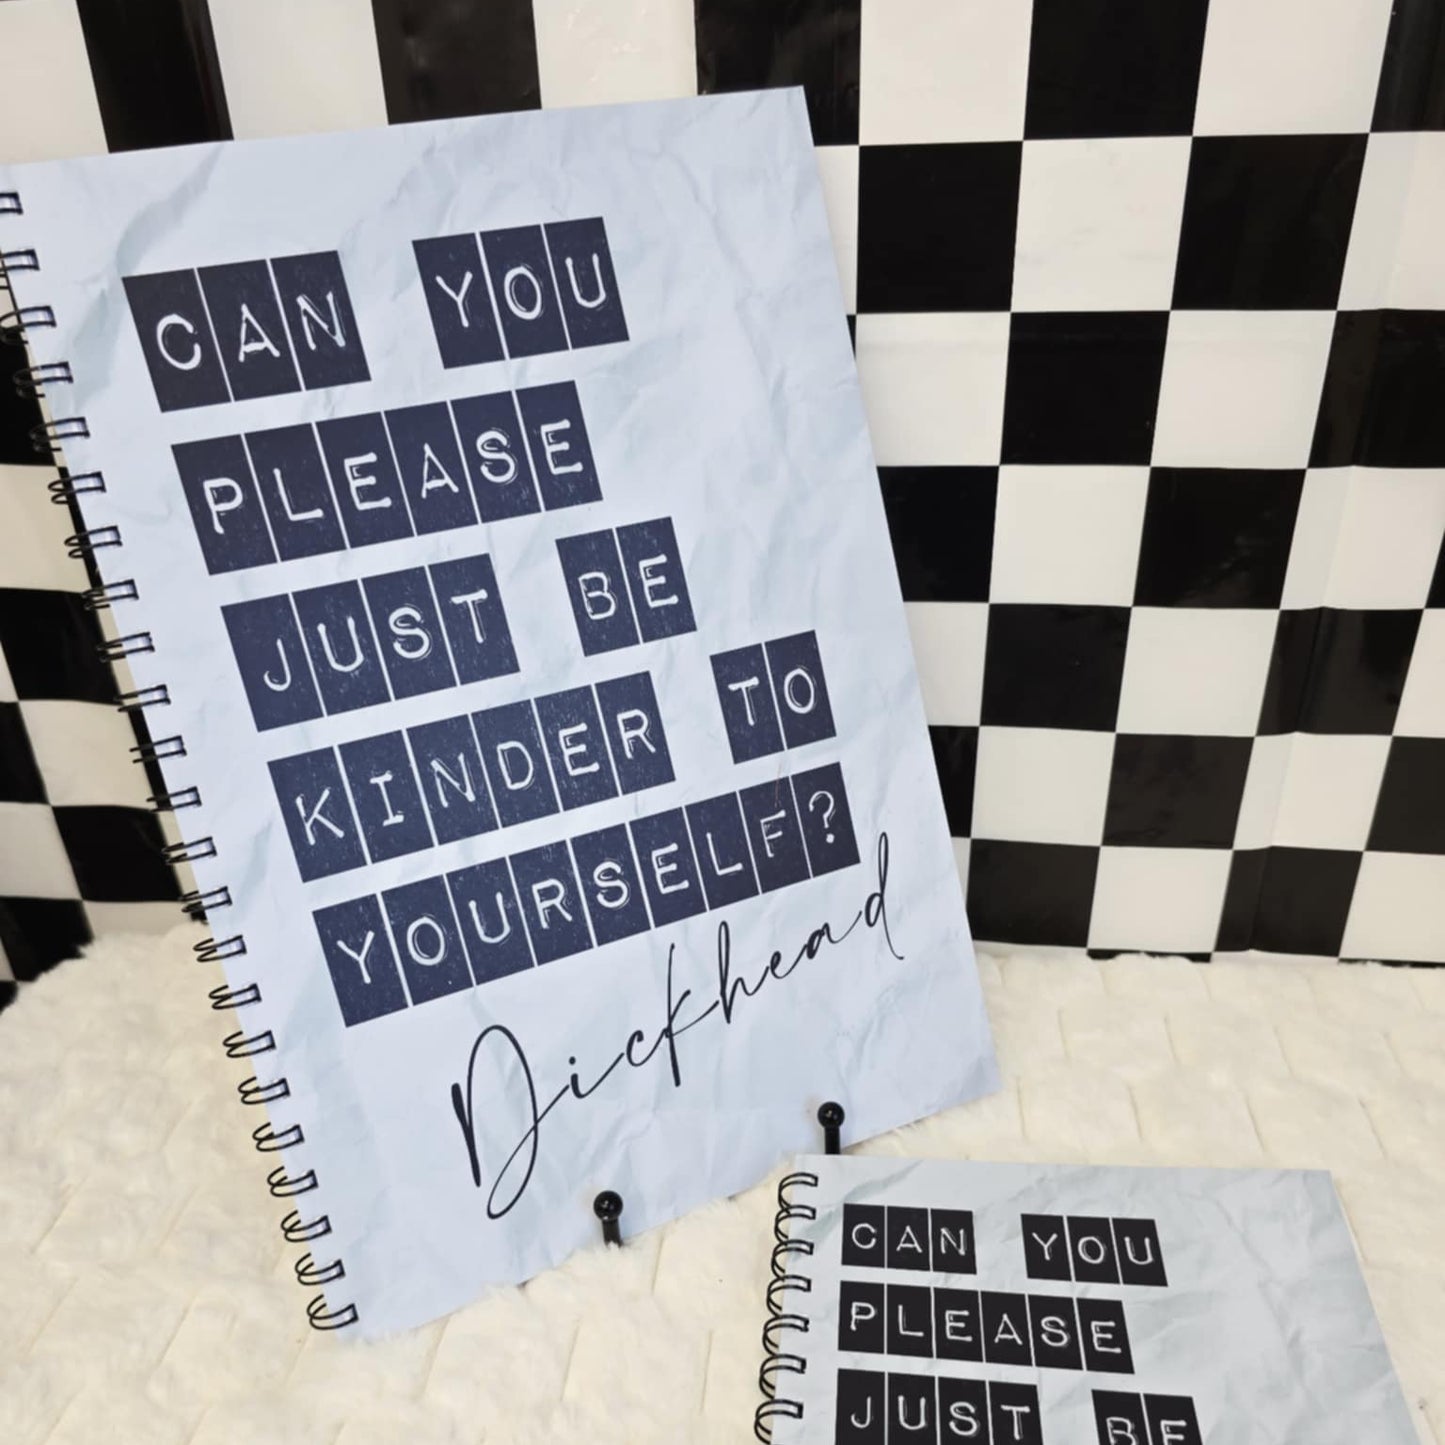 CAN YOU
PLEASE
JUST BE
KINDER TO
YOURSELF?
Dickhead
CAN YOU
PLEASE
JUST BE